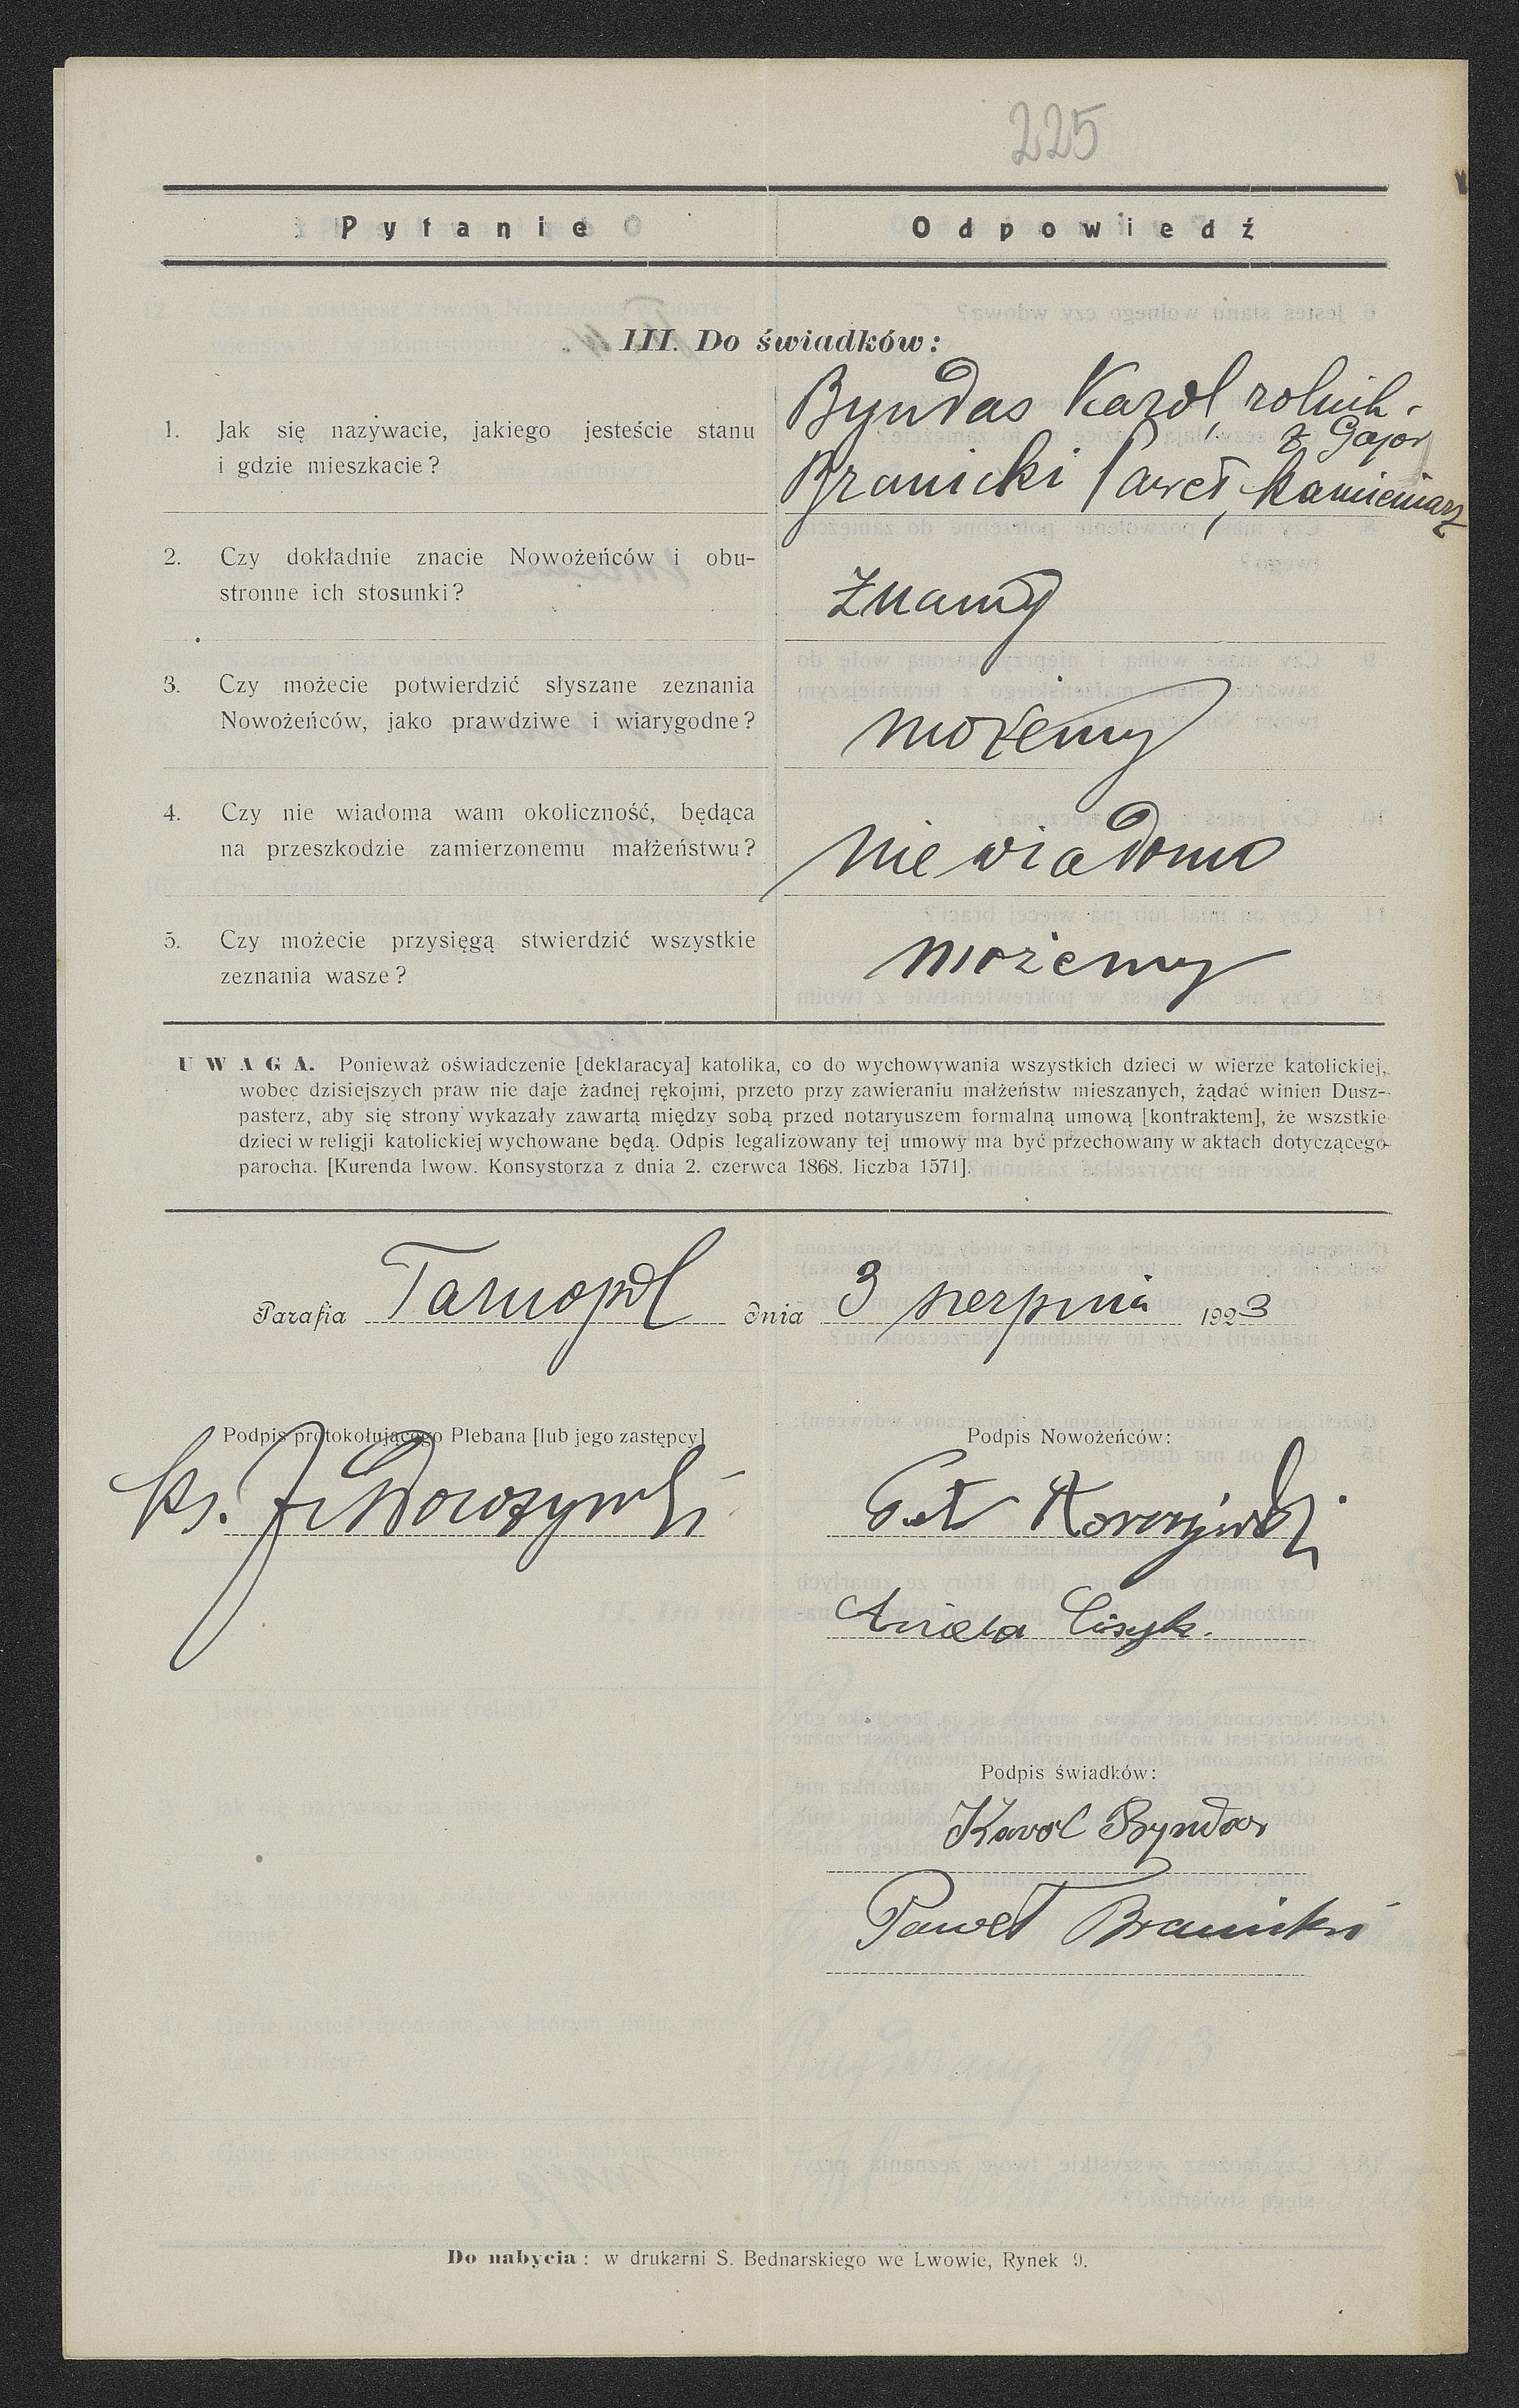 225
Pytanie Odpowiedź
III. Do świadków:
1. Jak się nazywacie, jakiego jesteście stanu
i gdzie mieszkacie?
Byndas Karol, rolnik.
z Gajów
Branicki Paweł, kamieniarz
2. Czy dokładnie znacie Nowożeńców i obu-
stronne ich stosunki?
znamy
3. Czy możecie potwierdzić słyszane zeznania
Nowożeńców, jako prawdziwe i wiarygodne?
możemy
4. Czy nie wiadoma wam okoliczność, będąca
na przeszkodzie zamierzonemu małżeństwu?
nie wiadoma
5. Czy możecie przysięgą stwierdzić wszystkie
zeznania wasze?
możemy
UWAGA. Ponieważ oświadczenie [deklaracya] katolika, co do wychowywania wszystkich dzieci w wierze katolickiej,
wobec dzisiejszych praw nie daje żadnej rękojmi, przeto przy zawieraniu małżeństw mieszanych, żądać winien Dusz-
pasterz, aby się strony wykazały zawartą między sobą przed notaryuszem formalną umową [kontraktem], że wszstkie
dzieci w religji katolickiej wychowane będą. Odpis legalizowany tej umowy ma być przechowany w aktach dotyczącego
parocha. [Kurenda lwow. Konsystorza z dnia 2. czerwca 1868. liczba 1571].
Parafia Tarnopol dnia 3 sierpnia 1923
Podpis protokołującego Plebana [lub jego zastępcy]
Ks.
Podpis Nowożeńców:
Aniela Cisyk.
Podpis świadków:
Karol Byndas
Paweł Branicki
Do nabycia: w drukarni S. Bednarskiego we Lwowie, Rynek 9.